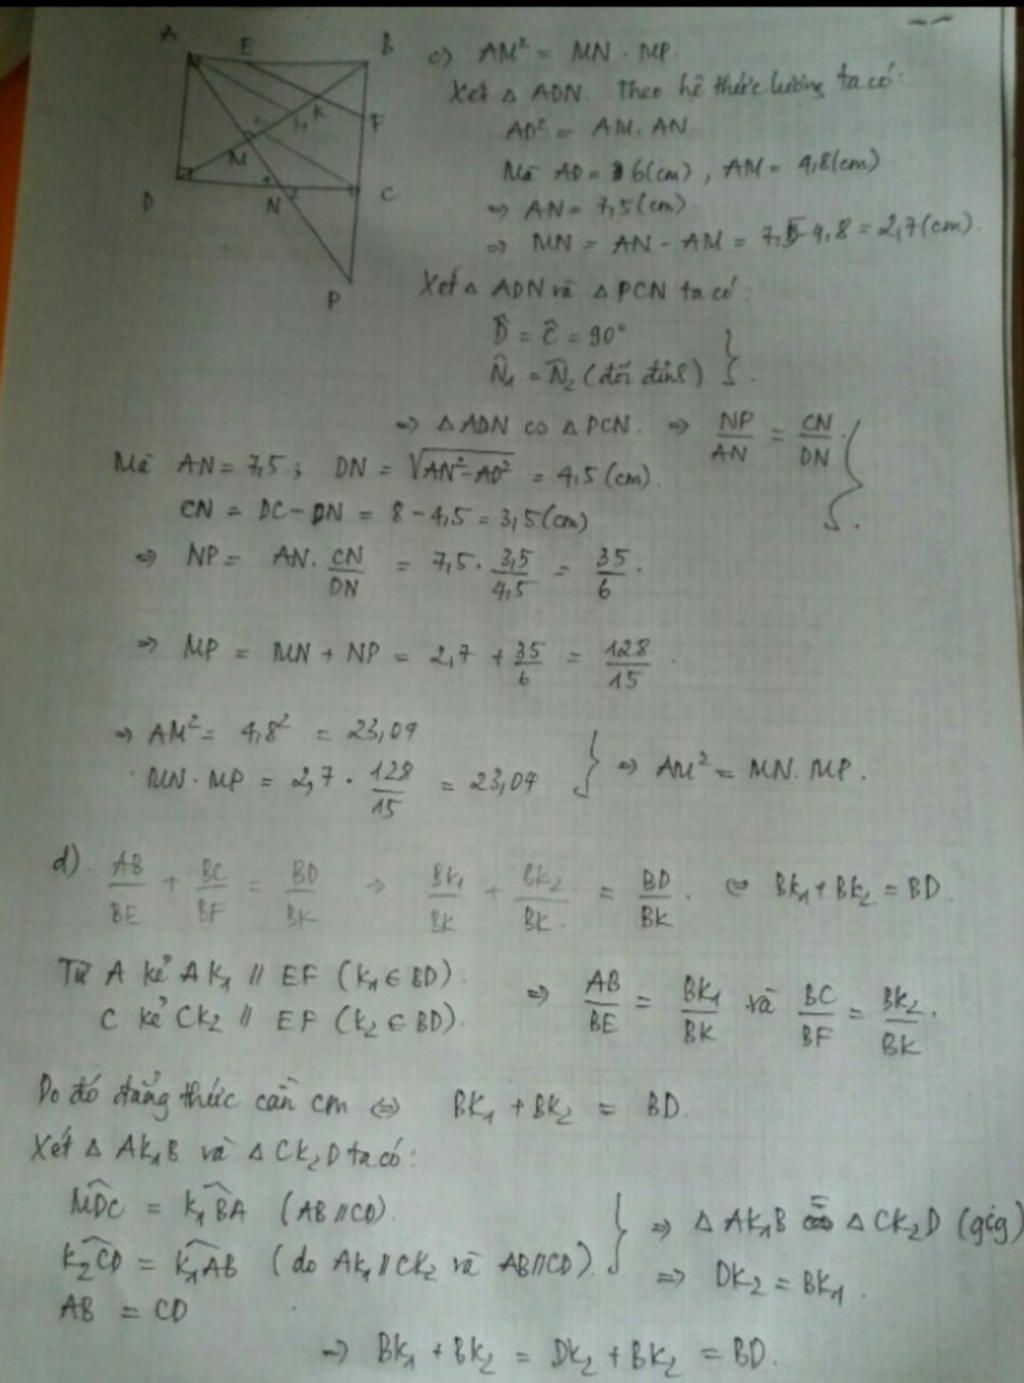 A E B
K F
M
D N C
P
c) AM² = MN . MP
Xét △ ADN. Theo hệ thức lượng ta có:
AD² = AM. AN
Mà AD = 6(cm), AM = 4,8(cm)
⇒ AN = 7,5(cm)
⇒ MN = AN - AM = 7,5-4,8 = 2,7(cm).
Xét △ ADN và △ PCN ta có:
D̂ = Ĉ = 90°
N̂₁ = N̂₂ (đối đỉnh) }.
⇒ △ ADN ∽ △ PCN. ⇒ NP/AN = CN/DN.
Mà AN = 7,5; DN = √(AN²-AD²) = 4,5(cm).
CN = DC - DN = 8 - 4,5 = 3,5(cm)
⇒ NP = AN. CN/DN = 7,5. 3,5/4,5 = 35/6.
⇒ MP = MN + NP = 2,7 + 35/6 = 128/15.
⇒ AM² = 4,8² = 23,04
MN. MP = 2,7 . 128/15 = 23,04 } ⇒ AM² = MN. MP.
d). AB/BE + BC/BF = BD/BK ⇒ BK₁/BK + BK₂/BK = BD/BK. ⇔ BK₁+BK₂ = BD.
Từ A kẻ AK₁ // EF (K₁ ∈ BD).
C kẻ CK₂ // EF (K₂ ∈ BD). ⇒ AB/BE = BK₁/BK và BC/BF = BK₂/BK.
Do đó đẳng thức cần cm ⇔ BK₁ + BK₂ = BD.
Xét △ AK₁B và △ CK₂D ta có:
MDC = K₁BA (AB//CD).
K₂CD = K₁AB (do AK₁//CK₂ và AB//CD).
AB = CD
} ⇒ △ AK₁B = △ CK₂D (gcg)
⇒ DK₂ = BK₁.
⇒ BK₁ + BK₂ = DK₂ + BK₂ = BD.